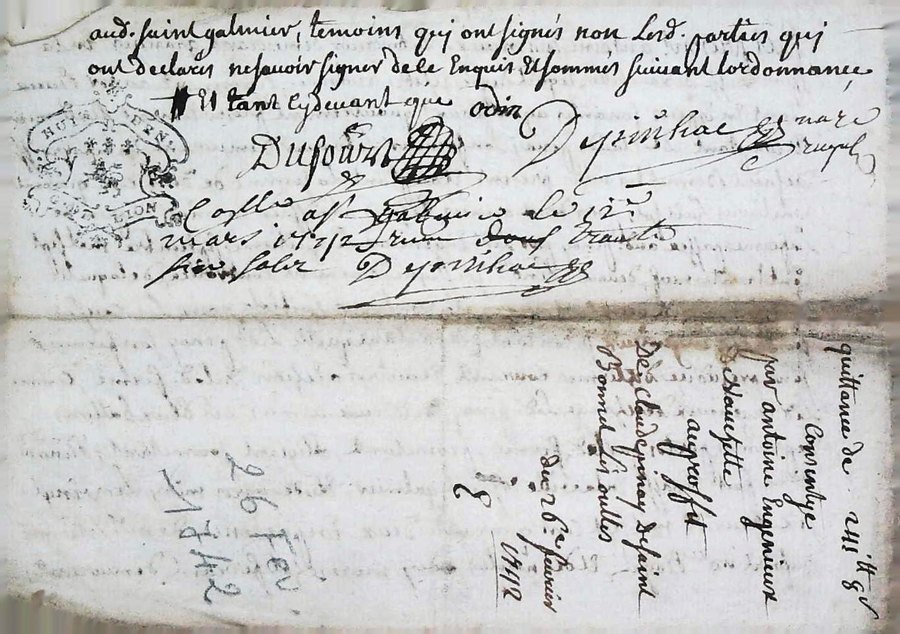 aud. saint galmier, temoins qui ont signés non Lesd. parties qui
ont declarés ne savoir signer de ce Enquis Et sommés suivant lordonnance
Et tant cydevant que odin
Dufour Depinhac nore
royal
HUIT DEN
LION
a st galmier le 12me
mars 1742 douze
Depinhac
quittance de
Consentye
par antoine Engenieux
au proffit
De Claude pinay De saint
Bonnet Les oulles
du 26e fevrier
1742
18
26 Fev.
1742